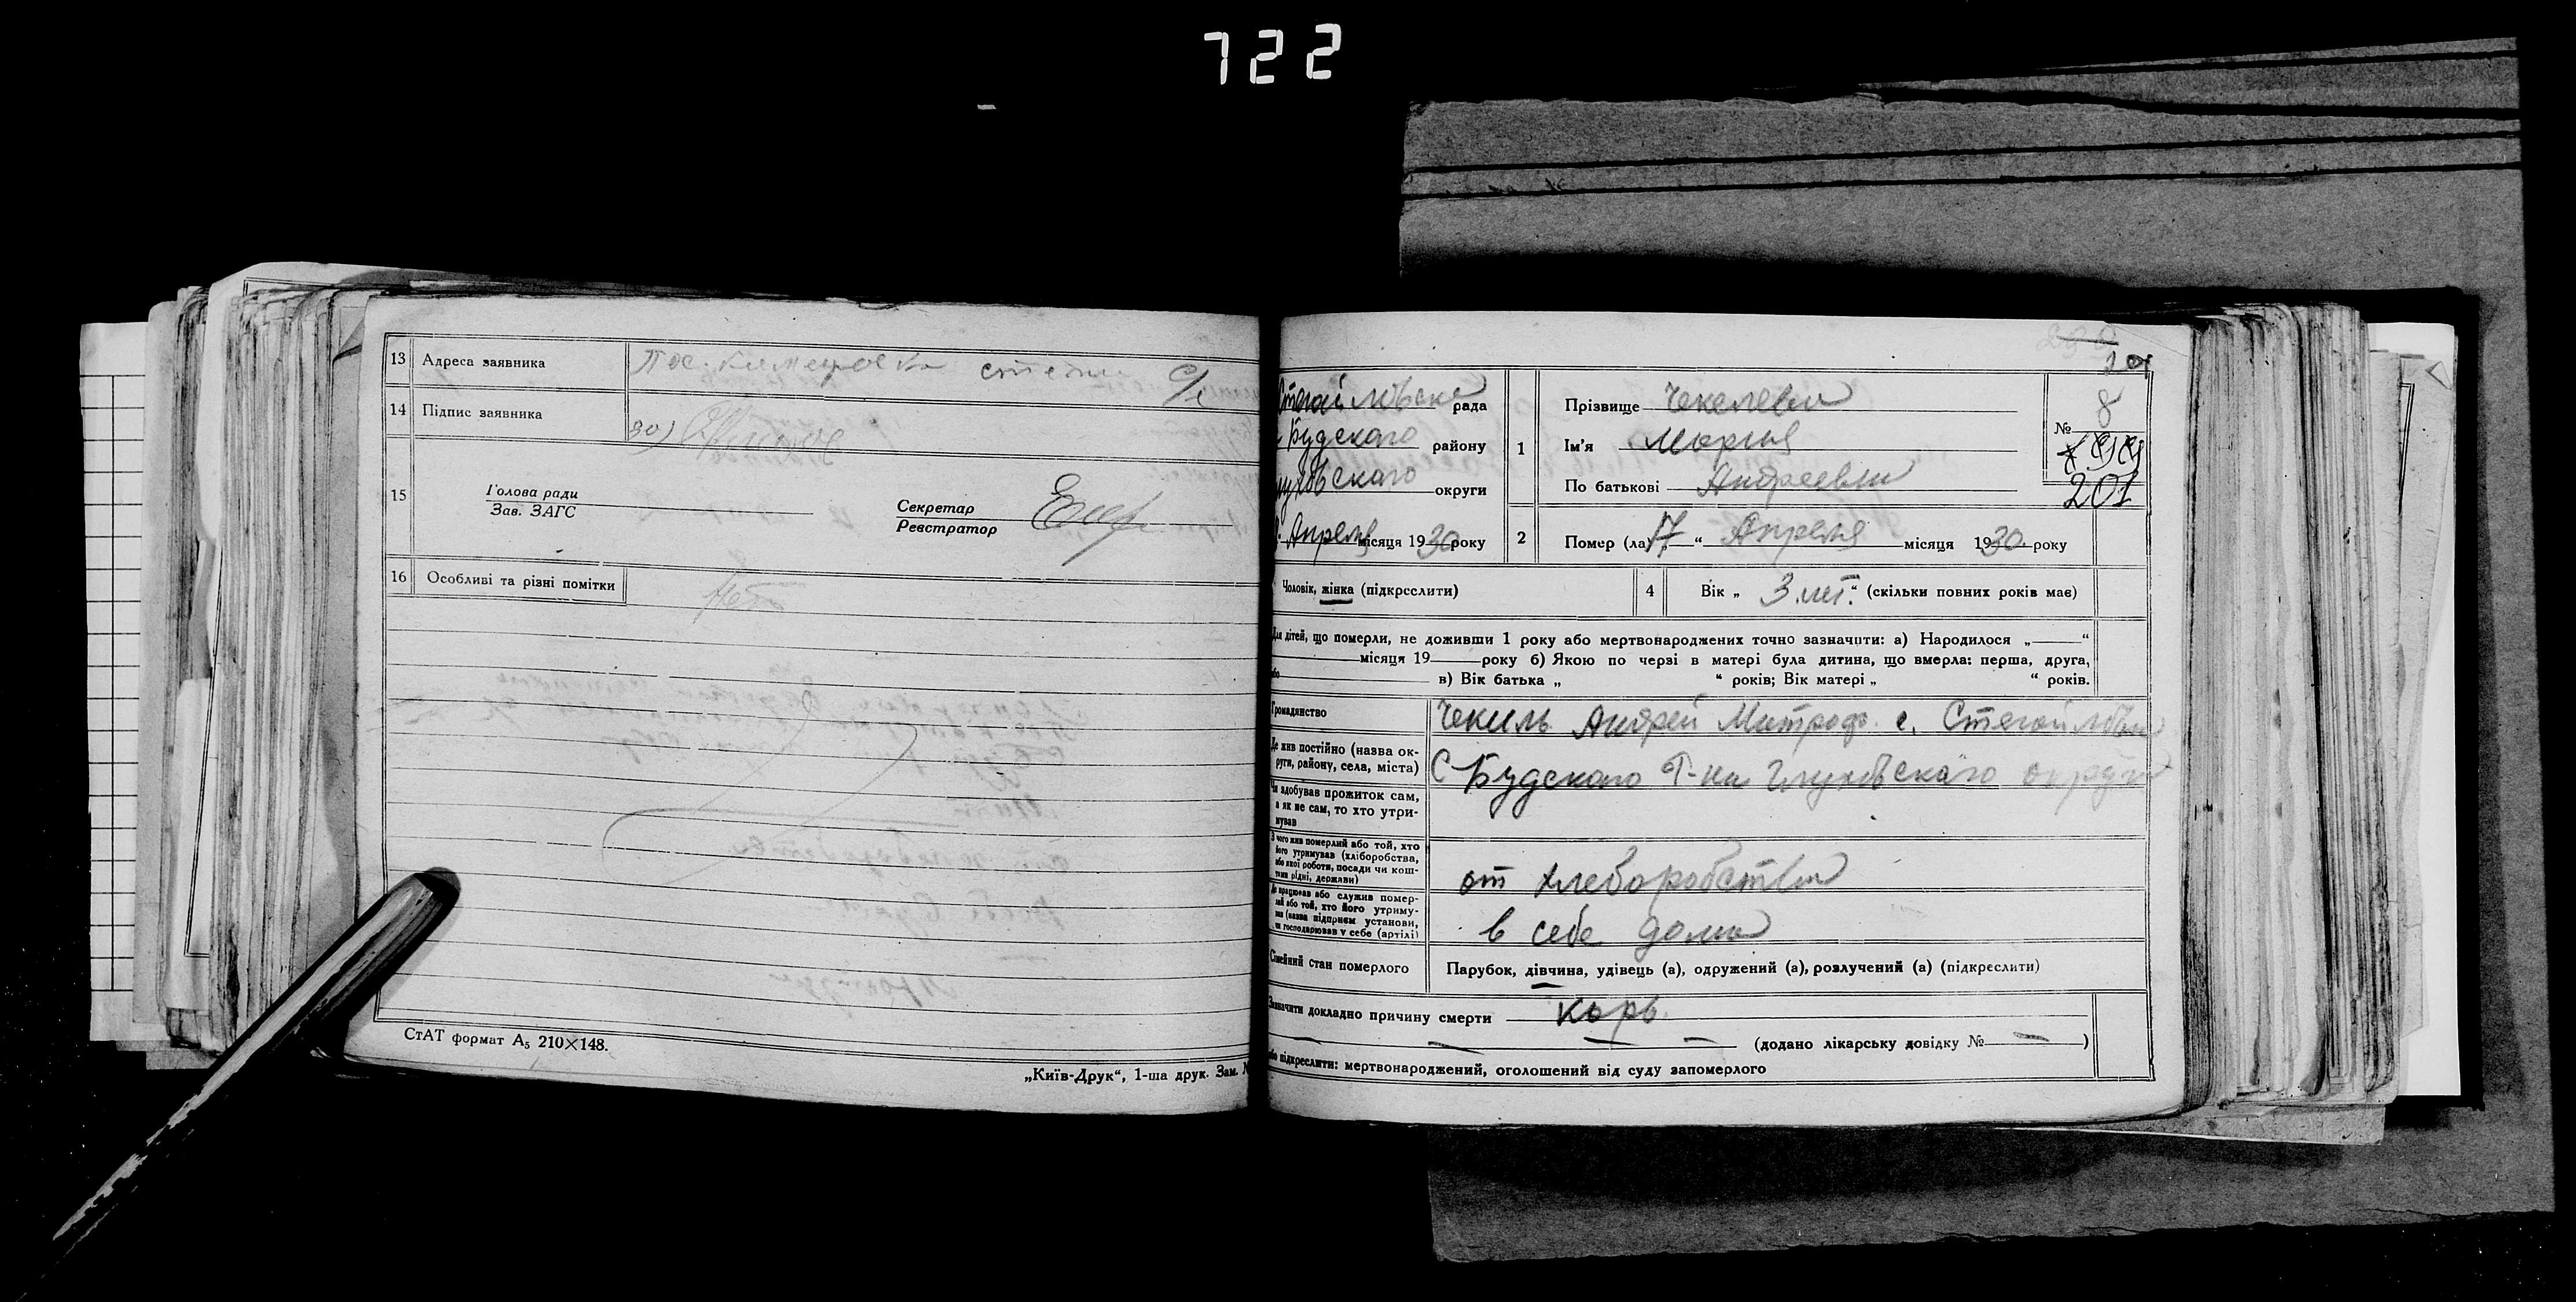 722
13 Адреса заявника
14 Підпис заявника
15 Голова ради
Зав. ЗАГС
Секретар
Реєстратор
16 Особливі та різні помітки
СтАТ формат А5 210×148.
„Київ-Друк“, 1-ша друк. Зам.
201
рада
Будского району
округи
Апреля місяця 1930 року
1 Прізвище
Ім'я Мария
По батькові Андреевна
№ 8
201
2 Помер (ла) 17 “ Апреля місяця 1930 року
Чоловік, жінка (підкреслити)
4 Вік „ 3 лет. “ (скільки повних років має)
Для дітей, що померли, не доживши 1 року або мертвонароджених точно зазначити: а) Народилося „ “
місяця 19 року б) Якою по черзі в матері була дитина, що вмерла: перша, друга,
або в) Вік батька „ “ років; Вік матері „ “ років.
Громадянство Чекиль Андрей Митроф. с.
Де жив постійно (назва ок-
руги, району, села, міста) С Будского Р-на Глуховского округи
Чи здобував прожиток сам,
а як не сам, то хто утри-
мував
З чого жив померлий або той, хто
його утримував (хліборобства,
або якої роботи, посади чи кош-
тами рідні, держави) от хлеборобства
Де працював або служив помер-
лий або той, хто його утриму-
вав (назва підприєм. установи,
чи господарював у себе (артілі) в себе дома
Сімейний стан померлого Парубок, дівчина, удівець (а), одружений (а), розлучений (а) (підкреслити)
Зазначити докладно причину смерти корь
(додано лікарську довідку № )
або підкреслити: мертвонароджений, оголошений від суду запомерлого